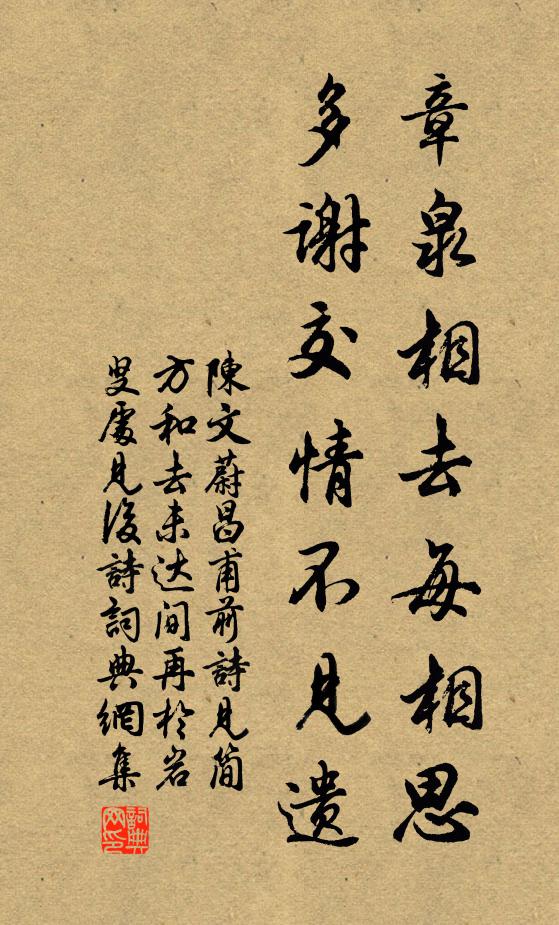 章泉相去每相思
多謝交情不見遗
陳文蔚昌甫前詩見简
方和去未达间再於岩
叟處見後詩詞典網集
詞典网印